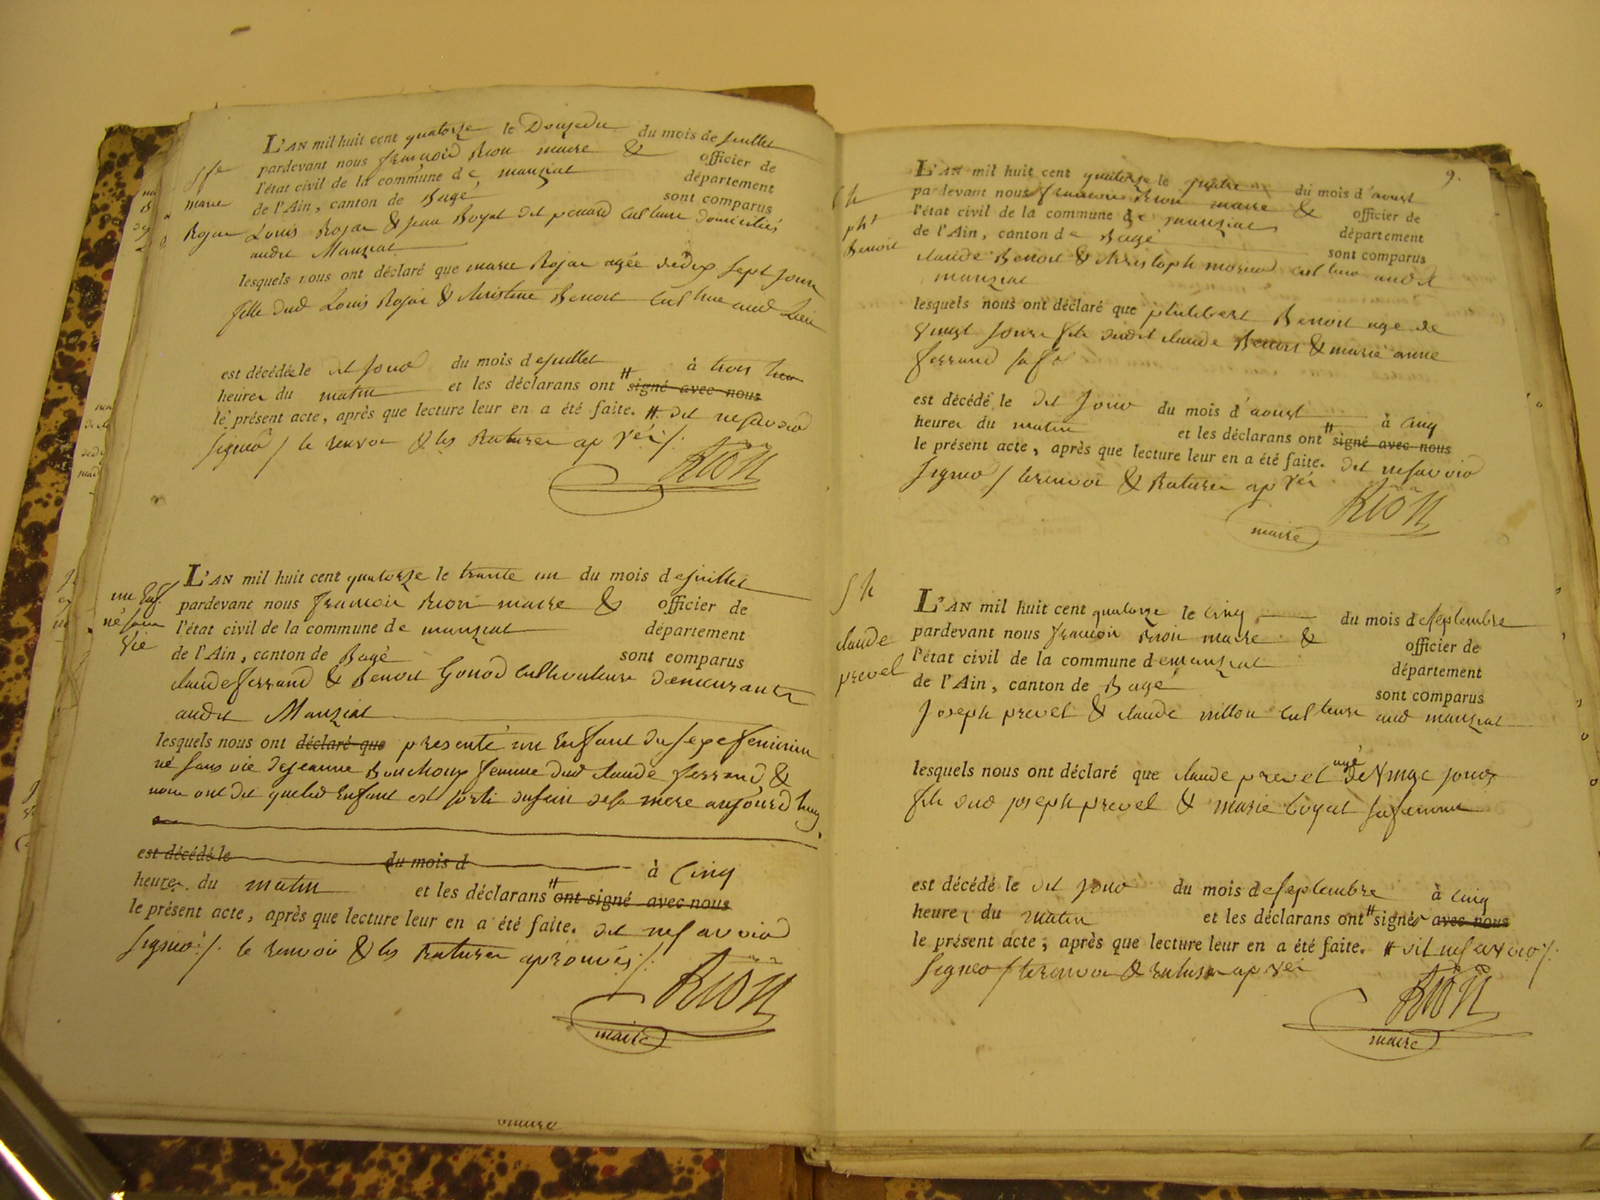 L'AN mil huit cent quatorze le Douze du mois de juillet
pardevant nous françois Rion maire & officier de
l'état civil de la commune de manziat département
de l'Ain, canton de Bagé sont comparus
marie
Rojat
Louis Rojat & jean Boyat dit penard cultiv domiciliés
audit Manziat
lesquels nous ont déclaré que marie Rojat agée de dix sept jours
fille dud Louis Rojat & christine Benoit cult aud Lieu
est décédée le dit jour du mois de juillet à trois
heures du matin et les déclarans ont # signé avec nous
le présent acte, après que lecture leur en a été faite. # dit ne savoir
signer / le renvoi & les Ratures ap vés /.
Rion
un Enft
né sans
vie
L'AN mil huit cent quatorze le trente un du mois de juillet
pardevant nous françois Rion maire & officier de
l'état civil de la commune de manziat département
de l'Ain, canton de Bagé sont comparus
claude ferrand & Benoit Gonod cultivateurs demeurants
audit Manziat
lesquels nous ont déclaré que présenté un Enfant du sexe feminin
né sans vie de jeanne Bouchoux femme dud claude ferrand &
nous ont dit que led Enfant est sorti du sein de sa mere aujourd'huy
est décédé le du mois d à cinq
heures du matin et les déclarans # ont signé avec nous
le présent acte, après que lecture leur en a été faite. dit ne savoir
signer /. le renvoi & les Ratures aprouvés /.
Rion
maire
9.
L'AN mil huit cent quatorze le quatre du mois d'aoust
pardevant nous françois Rion maire & officier de
l'état civil de la commune de manziat département
de l'Ain, canton de Bagé sont comparus
pht
Benoit
claude Benoit & christoph cult audit
manziat
lesquels nous ont déclaré que philibert Benoit age de
vingt jours fils dudit claude Benoit & marie anne
ferrand sa fe
est décédé le dit jour du mois d'aoust à cinq
heures du matin et les déclarans ont # signé avec nous
le présent acte, après que lecture leur en a été faite. dit ne savoir
signer / le renvoi & Ratures ap vés
Rion
maire
claude
prevel
L'AN mil huit cent quatorze le cinq du mois de septembre
pardevant nous françois Rion maire & officier de
l'état civil de la commune de manziat département
de l'Ain, canton de Bagé sont comparus
joseph prevel & claude cult aud manziat
lesquels nous ont déclaré que claude prevel agé de vingt jours
fils dud joseph prevel & marie boyat sa femme
est décédé le dit jour du mois de septembre à cinq
heures du matin et les déclarans ont # signés avec nous
le présent acte, après que lecture leur en a été faite. # dit ne savoir /.
signer / le renvoi & ratures ap vés
Rion
maire